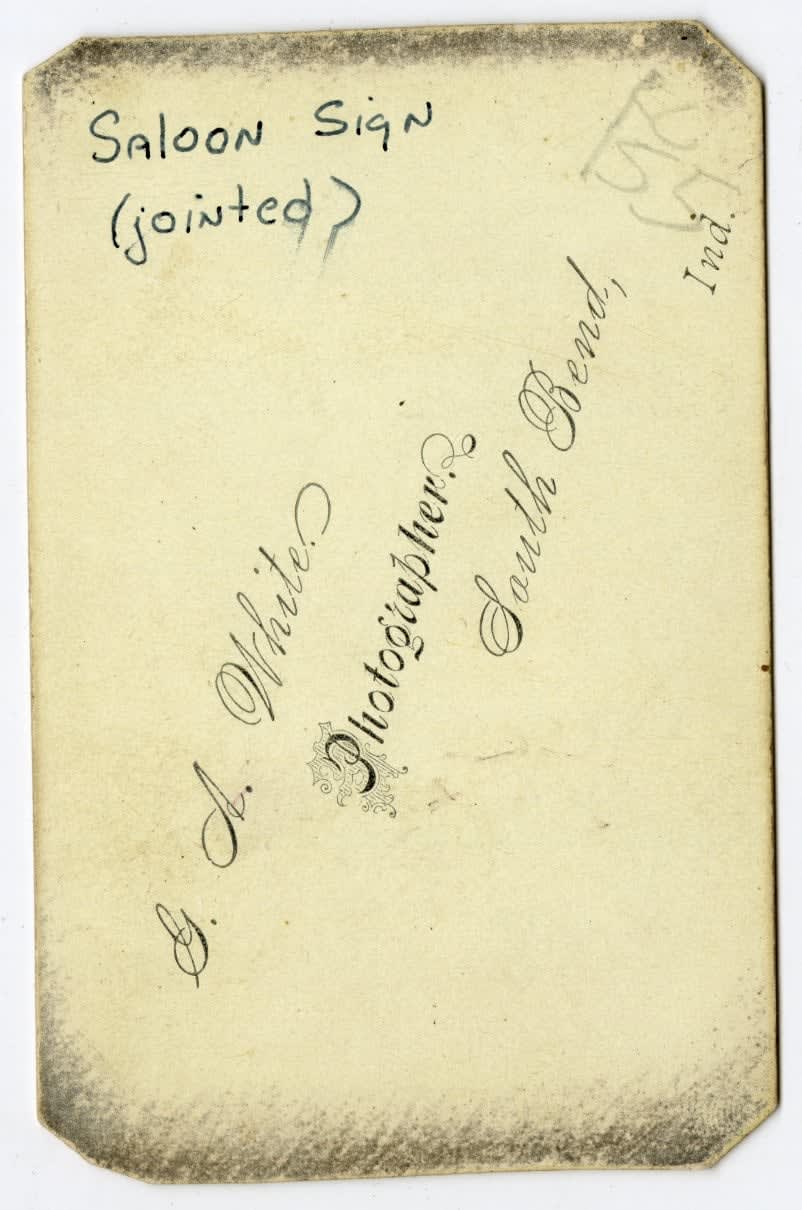 Saloon Sign
(jointed)
G. A. White.
Photographer.
South Bend,
Ind.